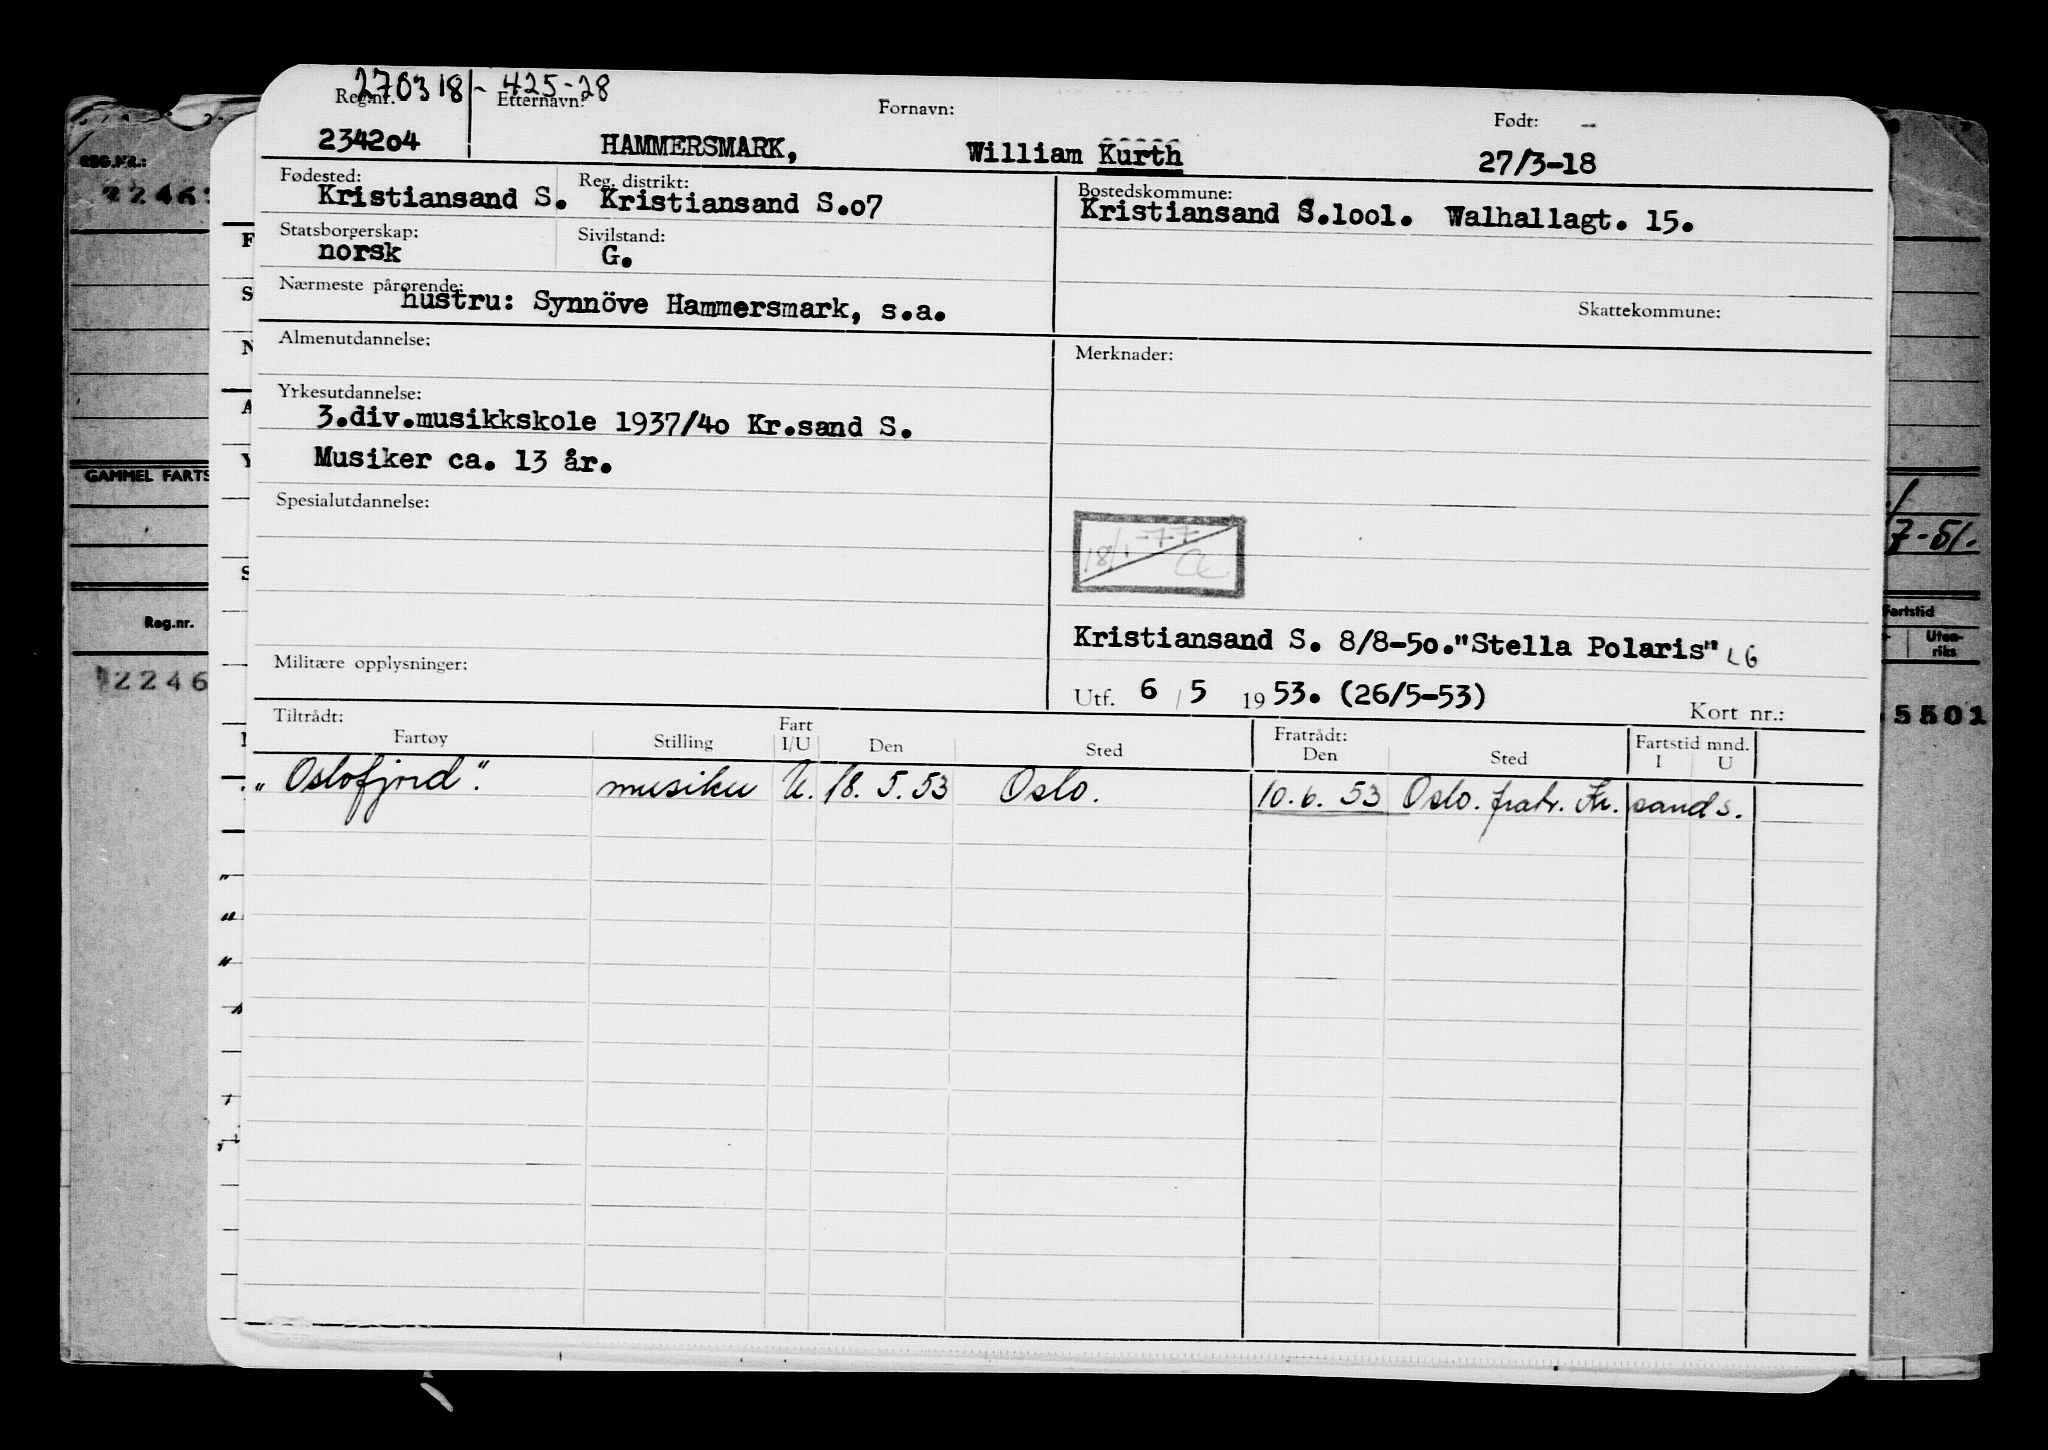 270318 - 425-28
Reg.nr. Etternavn: Fornavn: Født:
234204 HAMMERSMARK, William Kurth 27/3-18
Fødested: Reg. distrikt: Bostedskommune:
Kristiansand S. Kristiansand S.o7 Kristiansand S.1ool. Walhallagt. 15.
Statsborgerskap: Sivilstand:
norsk G.
Nærmeste pårørende: Skattekommune:
hustru: Synnöve Hammersmark, s.a.
Almenutdannelse: Merknader:
Yrkesutdannelse:
3.div.musikkskole 1937/4o Kr.sand S.
Musiker ca. 13 år.
Spesialutdannelse:
18/1-77
Kristiansand S. 8/8-5o."Stella Polaris" LG
Militære opplysninger:
Utf. 6 / 5 1953. (26/5-53)
Kort nr.:
Tiltrådt: Fratrådt:
Fartøy Stilling Fart I/U Den Sted Den Sted Fartstid mnd. I U
"Oslofjord". musiker U. 18.5.53 Oslo. 10.6.53 Oslo. fratr. Kr.sand s.
REG.NR.:
GAMMEL FARTS
Reg.nr.
2246
7-51.
Fartstid
Uten-
riks
5501